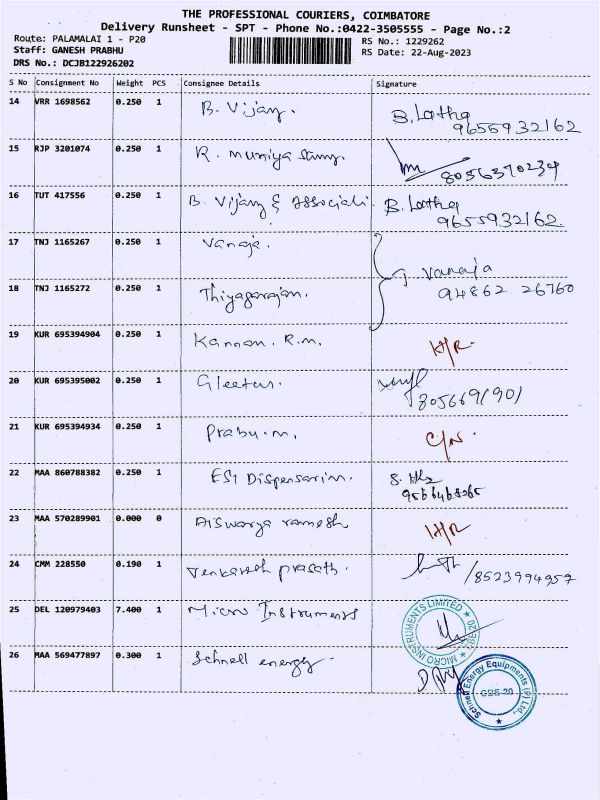 THE PROFESSIONAL COURIERS, COIMBATORE
Delivery Runsheet - SPT - Phone No.:0422-3505555 - Page No.:2
Route: PALAMALAI 1 - P20
RS No.: 1229262
Staff: GANESH PRABHU
RS Date: 22-Aug-2023
DRS No.: DCJB122926202
S No Consignment No Weight PCS Consignee Details Signature
14 VRR 1698562 0.250 1 B. Vijay. B. Latha
9655932162
15 RJP 3201074 0.250 1 R. muniya Samy.
8056370234
16 TUT 417556 0.250 1 B. Vijay & Associati. B. Latha
9655932162
17 TNJ 1165267 0.250 1 Vanaja.
Vanaja
18 TNJ 1165272 0.250 1 Thiyagarajan. 94862 26760
19 KUR 695394904 0.250 1 Kannan. R.m. H/R
20 KUR 695395002 0.250 1 Gleetus.
21 KUR 695394934 0.250 1 Prabu.m. C/N.
22 MAA 860788382 0.250 1 ESI Dispensarim.
23 MAA 570289901 0.000 0 Aiswarya ramesh H/R
24 CMM 228550 0.190 1 Venkatesh prasath. /8523994957
25 DEL 120979403 7.400 1 Micro Instruments
MICRO INSTRUMENTS LIMITED
26 MAA 569477897 0.300 1 Schnell energy.
Schnell Energy Equipments (P) Ltd.,